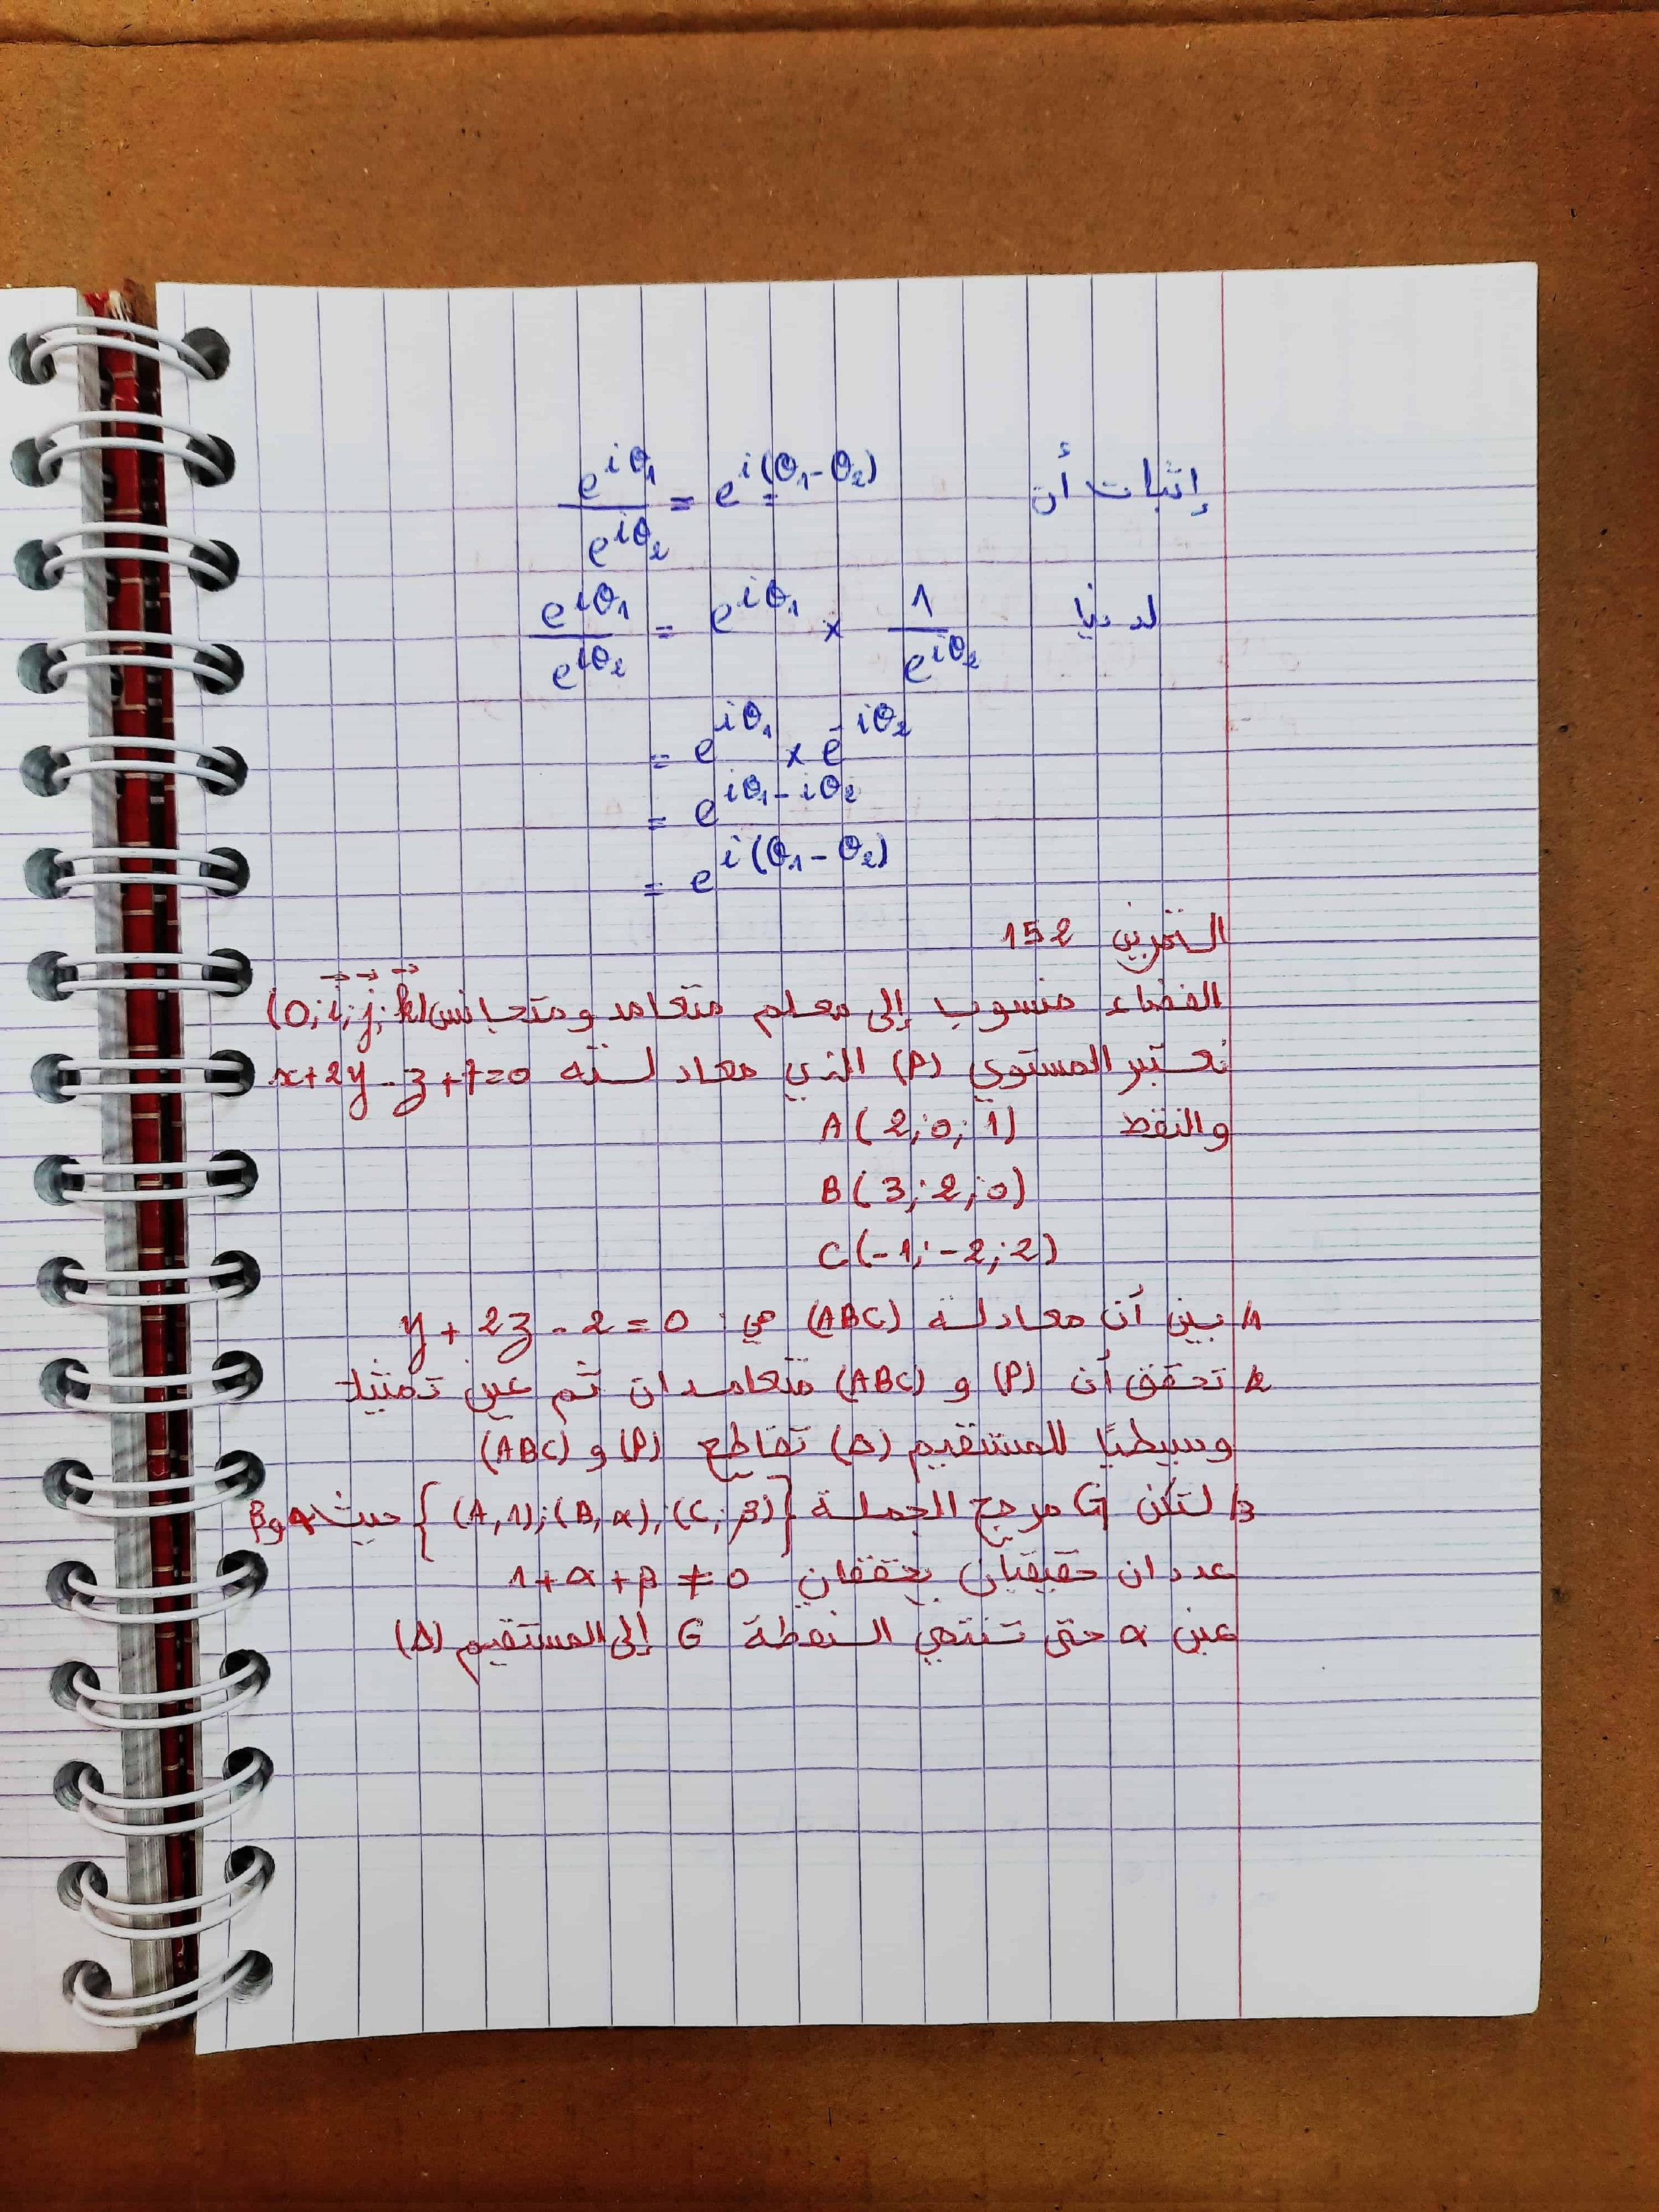 إثبات أن e^{iθ₁}/e^{iθ₂} = e^{i(θ₁-θ₂)}
لدينا e^{iθ₁}/e^{iθ₂} = e^{iθ₁} × 1/e^{iθ₂}
= e^{iθ₁} × e^{-iθ₂}
= e^{iθ₁-iθ₂}
= e^{i(θ₁-θ₂)}
التمرين 152
الفضاء منسوب إلى معلم متعامد ومتجانس (O;i⃗;j⃗;k⃗)
نعتبر المستوي (P) الذي معادلته x+2y-z+7=0
والنقط A(2;0;1)
B(3;2;0)
C(-1;-2;2)
1/ بين أن معادلة (ABC) هي: y+2z-2=0
2/ تحقق أن (P) و (ABC) متعامدان ثم عين تمثيلا
وسيطيًا للمستقيم (Δ) تقاطع (P) و (ABC)
3/ لتكن G مرجح الجملة {(A,1);(B,α);(C;β)} حيث α و β
عددان حقيقيان يحققان 1+α+β≠0
عين α حتى تنتمي النقطة G إلى المستقيم (Δ)